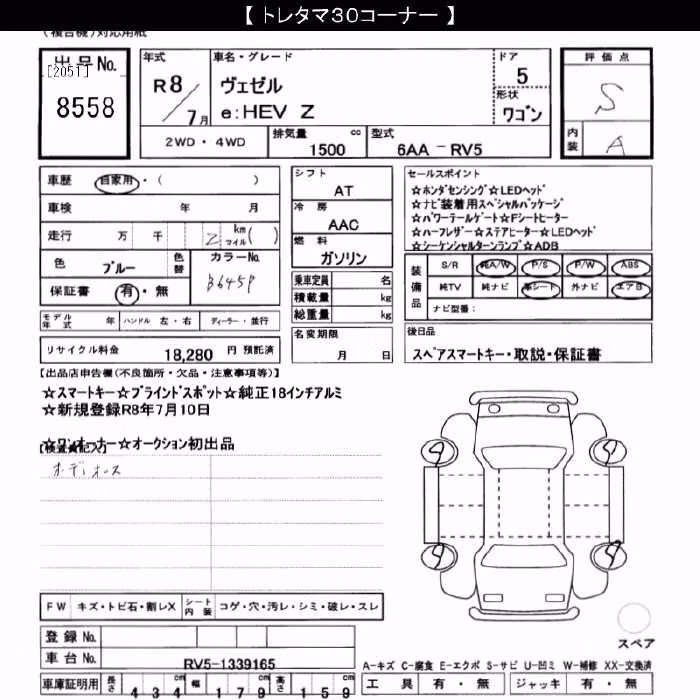 【 トレタマ30コーナー 】
(複合機)対応用紙
出品No.
[2051]
8558
年式
R8/7月
車名・グレード
ヴェゼル
e:HEV Z
ドア
5
形状
ワゴン
評価点
S
内装
A
2WD・4WD
排気量
1500 cc
型式
6AA - RV5
車歴 自家用・( )
車検 年 月
走行 万 千 2 km マイル ( )
色 ブルー 色替
カラーNo.
B645P
保証書 有・無
モデル年式 年 ハンドル 左・右 ディーラー・並行
リサイクル料金 18,280 円 預託済
シフト
AT
冷房
AAC
燃料
ガソリン
乗車定員 名
積載量 kg
総重量 kg
名変期限
月 日
セールスポイント
☆ホンダセンシング☆LEDヘッド
☆ナビ装着用スペシャルパッケージ
☆パワーテールゲート☆Fシートヒーター
☆ハーフレザー☆ステアヒーター☆LEDヘッド
☆シーケンシャルターンランプ☆ADB
装備品
S/R 純A/W P/S P/W ABS
純TV 純ナビ 革シート 外ナビ エアB
ナビ型番:
後日品
スペアスマートキー・取説・保証書
【出品店申告欄(不良箇所・欠品・注意事項等)】
☆スマートキー☆ブラインドスポット☆純正18インチアルミ
☆新規登録R8年7月10日
☆ワンオーナー☆オークション初出品
【検査員記入】
オーディオレス
FW キズ・トビ石・割レX シート内装 コゲ・穴・汚レ・シミ・破レ・スレ
登録No.
車台No. RV5-1339165
車庫証明用 長さ 434 cm 幅 179 cm 高さ 159 cm
スペア
A-キズ C-腐食 E-エクボ S-サビ U-凹ミ W-補修 XX-交換済
工具 有・無 ジャッキ 有・無